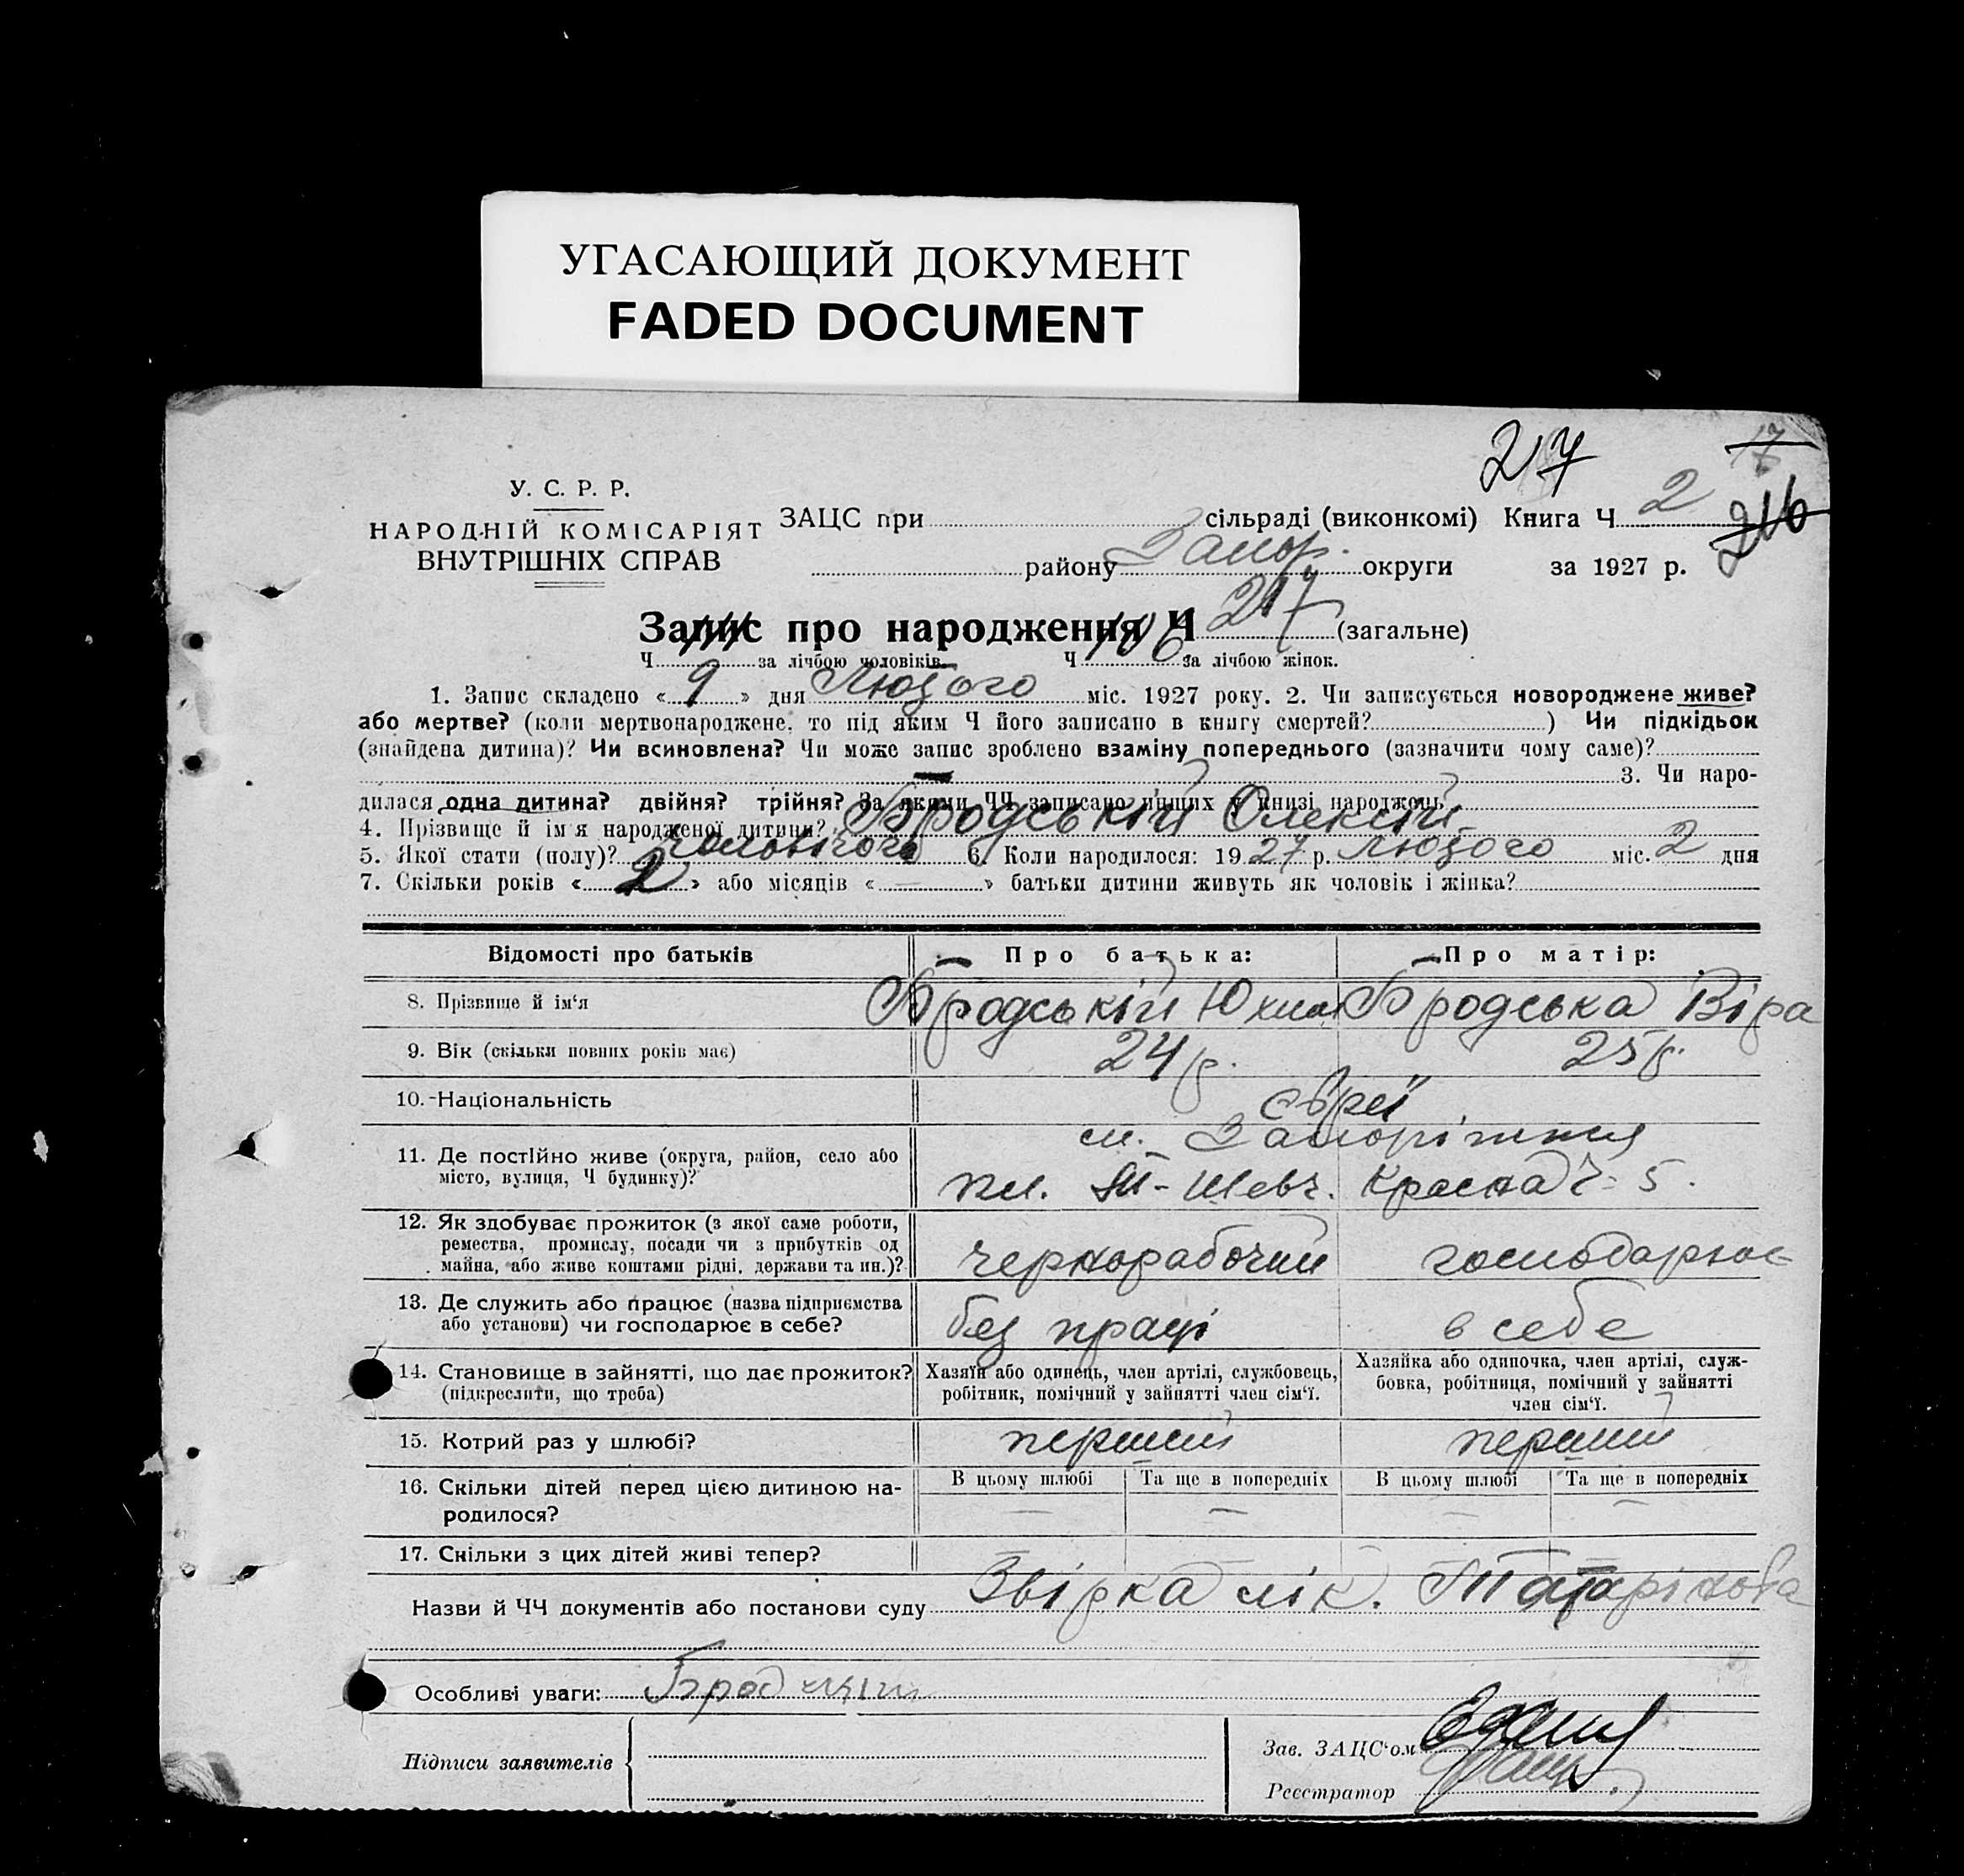 УГАСАЮЩИЙ ДОКУМЕНТ
FADED DOCUMENT
27 17
У. С. Р. Р.
НАРОДНІЙ КОМІСАРІЯТ
ВНУТРІШНІХ СПРАВ
ЗАЦС при сільраді (виконкомі) Книга Ч 2 216
району Запор. округи за 1927 р.
Запис про народження Ч 217 (загальне)
Ч 111 за лічбою чоловіків. Ч 106 за лічбою жінок.
1. Запис складено « 9 » дня Лютого міс. 1927 року. 2. Чи записується новороджене живе?
або мертве? (коли мертвонароджене, то під яким Ч його записано в книгу смертей? ) Чи підкідьок
(знайдена дитина)? Чи всиновлена? Чи може запис зроблено взаміну попереднього (зазначити чому саме)?
3. Чи наро-
дилася одна дитина? двійня? трійня? За якими ЧЧ записано инших у книзі народжень?
4. Прізвище й ім'я народженої дитини? Бродський Олексій
5. Якої стати (полу)? чоловічого 6. Коли народилося: 19 27 р. Лютого міс. 2 дня
7. Скільки років « 2 » або місяців « — » батьки дитини живуть як чоловік і жінка?
Відомості про батьків Про батька: Про матір:
8. Прізвище й ім'я Бродський Юхим Бродська Віра
9. Вік (скільки повних років має) 24 р. 25 р.
10. Національність євреї
11. Де постійно живе (округа, район, село або
місто, вулиця, Ч будинку)?
м. Запоріжжя
пл. Т-Шевч. Красна Ч 5.
12. Як здобуває прожиток (з якої саме роботи,
ремества, промислу, посади чи з прибутків од
майна, або живе коштами рідні, держави та ин.)?
чернорабочий господарює
13. Де служить або працює (назва підприємства
або установи) чи господарює в себе?
без праці в себе
14. Становище в зайнятті, що дає прожиток?
(підкреслити, що треба)
Хазяїн або одинець, член артілі, службовець,
робітник, помічний у зайнятті член сім'ї.
Хазяйка або одиночка, член артілі, служ-
бовка, робітниця, помічний у зайнятті
член сім'ї.
15. Котрий раз у шлюбі? перший перший
16. Скільки дітей перед цією дитиною на-
родилося?
В цьому шлюбі Та ще в попередніх В цьому шлюбі Та ще в попередніх
— — — —
17. Скільки з цих дітей живі тепер? — — — —
Назви й ЧЧ документів або постанови суду Звірка лік.
Особливі уваги:
Підписи заявителів
Зав. ЗАЦС'ом
Реєстратор